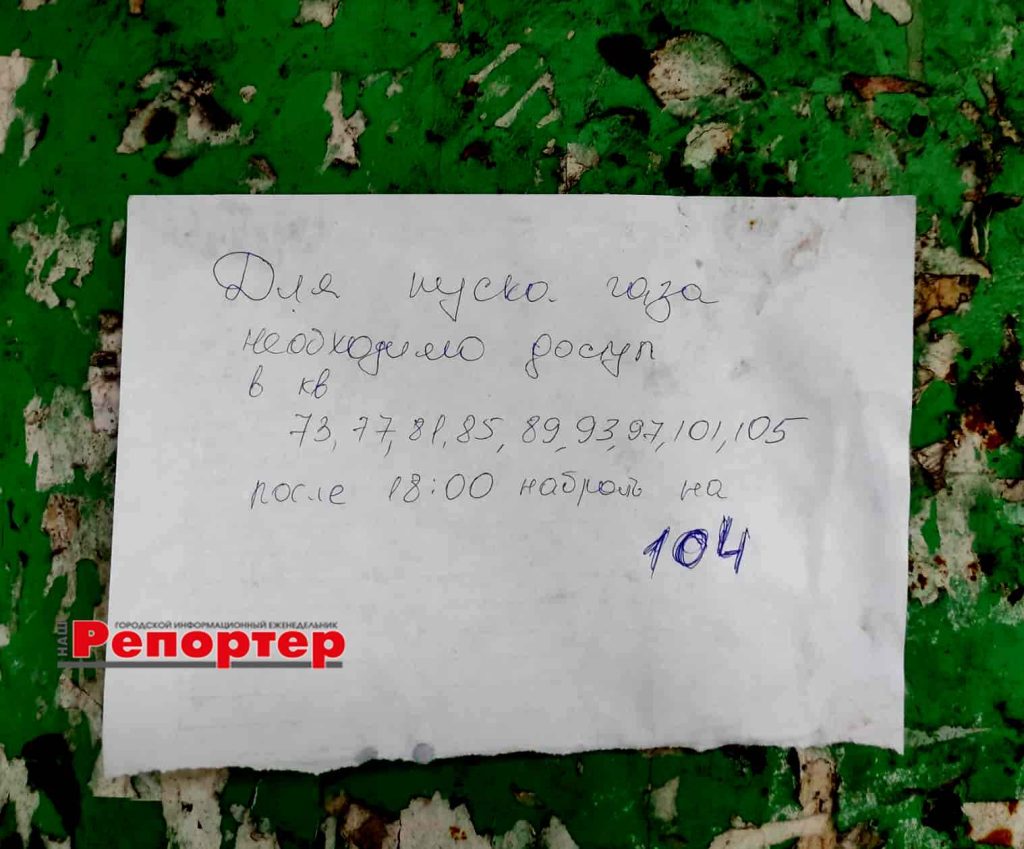 Для пуска газа
необходимо доступ
в кв
73, 77, 81, 85, 89, 93, 97, 101, 105
после 18:00 набрать на
104
ГОРОДСКОЙ ИНФОРМАЦИОННЫЙ ЕЖЕНЕДЕЛЬНИК
НАШ Репортер